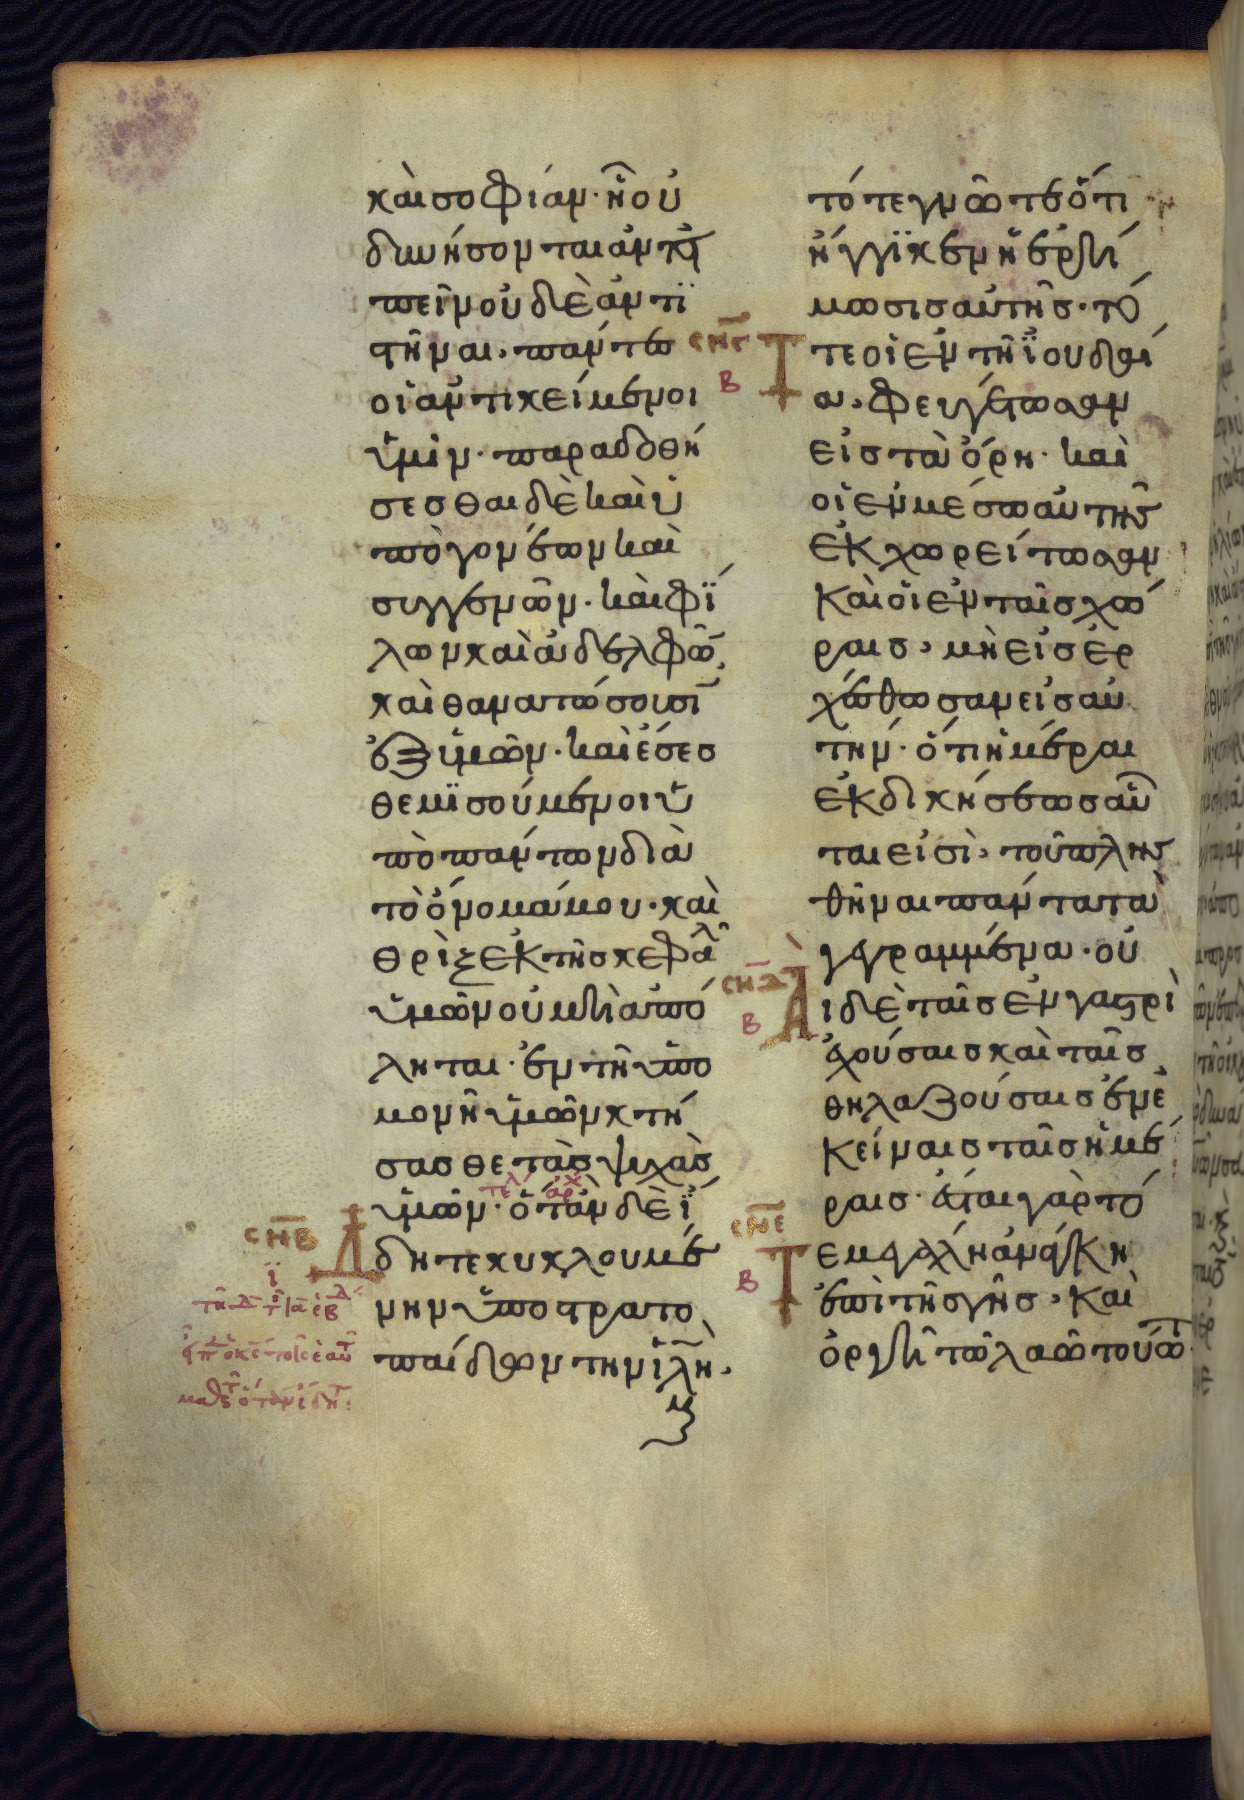 καὶ σοφίαν· ἧ οὐ
δυνήσονται ἀντει
πεῖν οὐδὲ ἀντϊ
στῆναι· πάντες
οἱ ἀντικείμενοι
ὑμῖν· παραδοθή
σεσθαι δὲ καὶ ὑ
πὸ γονέων καὶ
συγγενῶν· καὶ φΐ
λων καὶ ἀδελφῶ̅
καὶ θανατώσουσϊ
ἐξ ὑμῶν· καὶ ἔσεσ
θε μϊσούμενοι ὑ
πὸ πάντων διὰ
τὸ ὄνομά μου· καὶ
θρὶξ ἐκ τῆς κεφαλ
ὑμῶν οὐ μὴ ἀπό
ληται· ἐν τῆ ὑπο
μονῆ ὑμῶν κτή
σασθε τὰς ψυχὰς
ὑμῶν· ὅταν δὲ ἴ
τελ αρχ
σ̅μ̅β̅
δητε κυκλουμέ
νην ὑπὸ στρατο
παίδων τὴν ἱλημ·
τότε γνῶτε ὅτι
ἤγγϊκεν ἡ ἐρή
μωσις αὐτῆς· τό
σ̅μ̅γ̅
τε οἱ ἐν τῆ ϊουδαί
β
α· φευγέτωσαν
εἰς τὰ ὄρη· καὶ
οἱ ἐν μέσω αὐτῆς
ἐκχωρείτωσαν
καὶ οἱ ἐν ταῖς χώ
ραις· μὴ εἰσέρ
χέσθωσαν εἰς αὐ
τήν· ὅτι ἡμέραι
ἐκδικήσεως αὗ
ται εἰσὶ· τοῦ πλησ
θῆναι πάντα τὰ
γεγραμμένα· οὐ
σ̅μ̅δ̅
αὶ δὲ ταῖς ἐν γαστρὶ
β
ἐχούσαις καὶ ταῖς
θηλαζούσαις ἐν ἐ
κείναις ταῖς ἡμέ
ραις· ἔσται γὰρ τό
σ̅μ̅ε̅
τε μεγάλη ἀνάγκη
β
ἐπὶ τῆς γῆς· καὶ
ὀργὴ τῶ λαῶ τούτω·